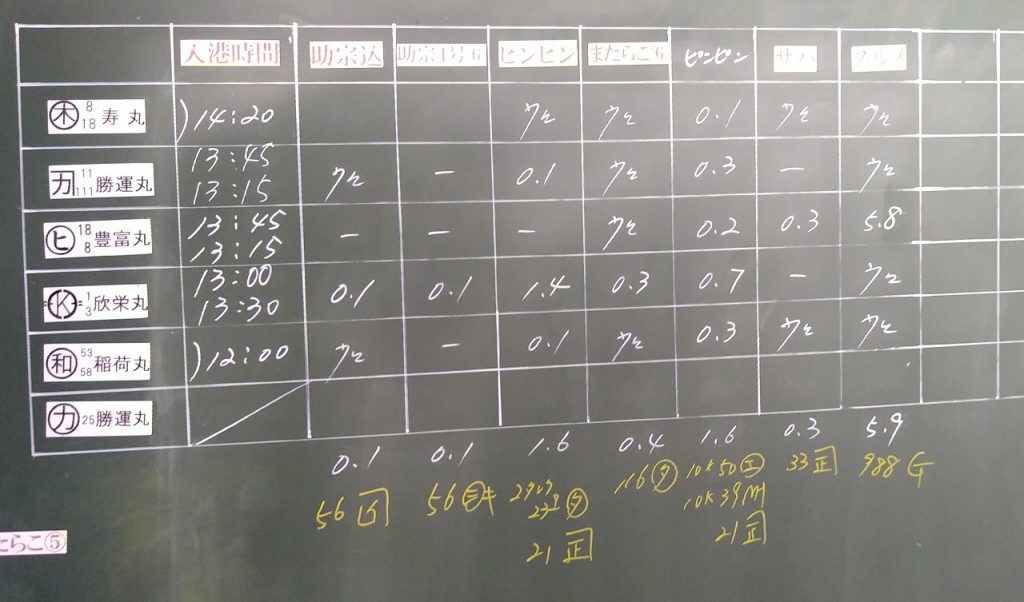 入港時間 助宗込 助宗1号6 ピンピン またらこ6 ピンピン サバ
木 8 18 寿丸 )14:20 ウロ ウロ 0.1 ウロ ウロ
カ 11 111 勝運丸 13:45 13:15 ウロ - 0.1 ウロ 0.3 - ウロ
ヒ 18 8 豊富丸 13:45 13:15 - - - ウロ 0.2 0.3 5.8
K 1 3 欣栄丸 13:00 13:30 0.1 0.1 1.4 0.3 0.7 - ウロ
和 53 58 稲荷丸 )12:00 ウロ - 0.1 ウロ 0.3 ウロ ウロ
カ 25 勝運丸
0.1 0.1 1.6 0.4 1.6 0.3 5.9
56 56 10K50 33 正 988
10K39
21 正 21 正
たらこ⑤